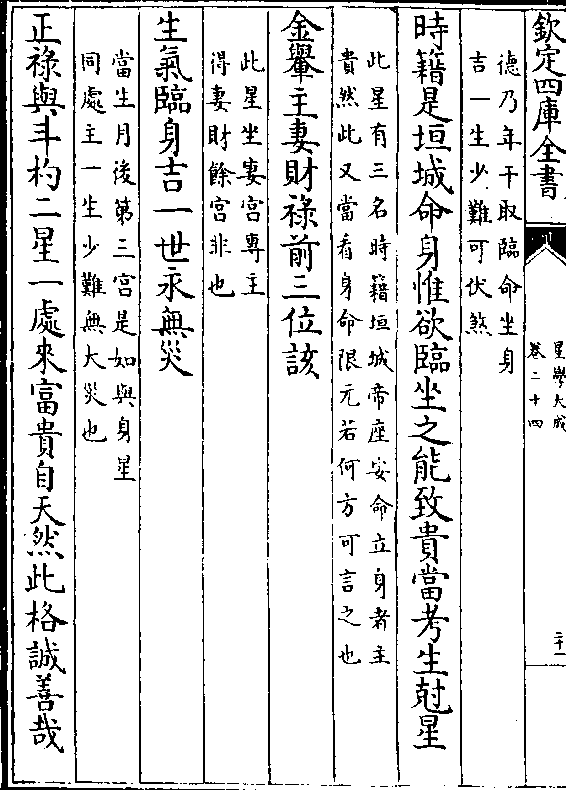 欽定四庫全書
星學大成
卷二十四
二十一
德乃年干取臨命坐身
吉一生少難可伏煞
時籍是垣城命身惟欲臨坐之能致貴當考生尅星
此星有三名時籍垣城帝座安命立身者主
貴然此又當看身命限元若何方可言之也
金轝主妻財祿前三位該
此星坐妻宮專主
得妻財餘宮非也
生氣臨身吉一世永無災
當生月後第三宮是如與身星
同處主一生少難無大災也
正祿與斗杓二星一處來富貴自天然此格誠善哉